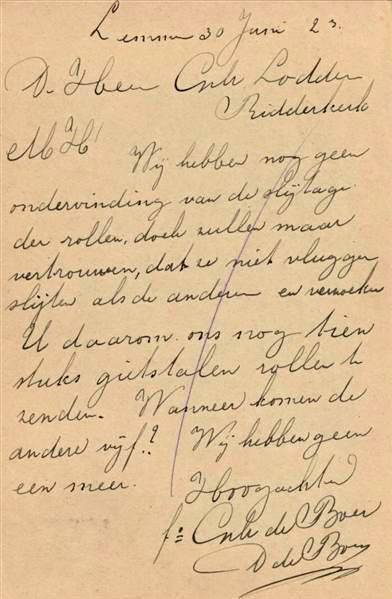 Lemmer 30 Juni 23.
D. Heer Cnh Lodder
Ridderkerk
M H!
Wij hebben nog geen
ondervinding van de slijtage
der rollen, doch zullen maar
vertrouwen, dat ze niet vlugger
slijten als de anderen en verzoeken
U daarom ons nog tien
stuks gietstalen rollen te
zenden. Wanneer komen de
andere vijf? Wij hebben geen
een meer.
Hoogachtend
fa Cnh de Boer
D de Boer